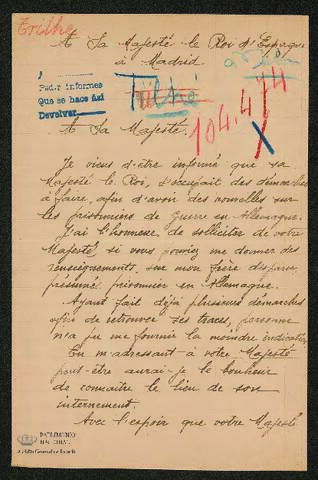 Trilhe
A Sa Majesté le Roi d'Espagne
à Madrid.
Pedir informes
Que se hace así
Devolver
Trilhé
104.474
A Sa Majesté.
Je viens d'être informé que sa
Majesté le Roi, s'occupait des démarches
à faire, afin d'avoir des nouvelles sur
les prisonniers de Guerre en Allemagne.
J'ai l'honneur de solliciter de votre
Majesté, si vous pouviez me donner des
renseignements, sur mon frère disparu,
présumé prisonnier en Allemagne.
Ayant fait déjà plusieures démarches
afin de retrouver ses traces, personne
n'a pu me fournir la moindre indication
En m'adressant à votre Majesté
peut-être aurai-je le bonheur
de connaître le lieu de son
internement.
Avec l'espoir que votre Majesté
PATRIMONIO
NACIONAL
Archivo General de Palacio